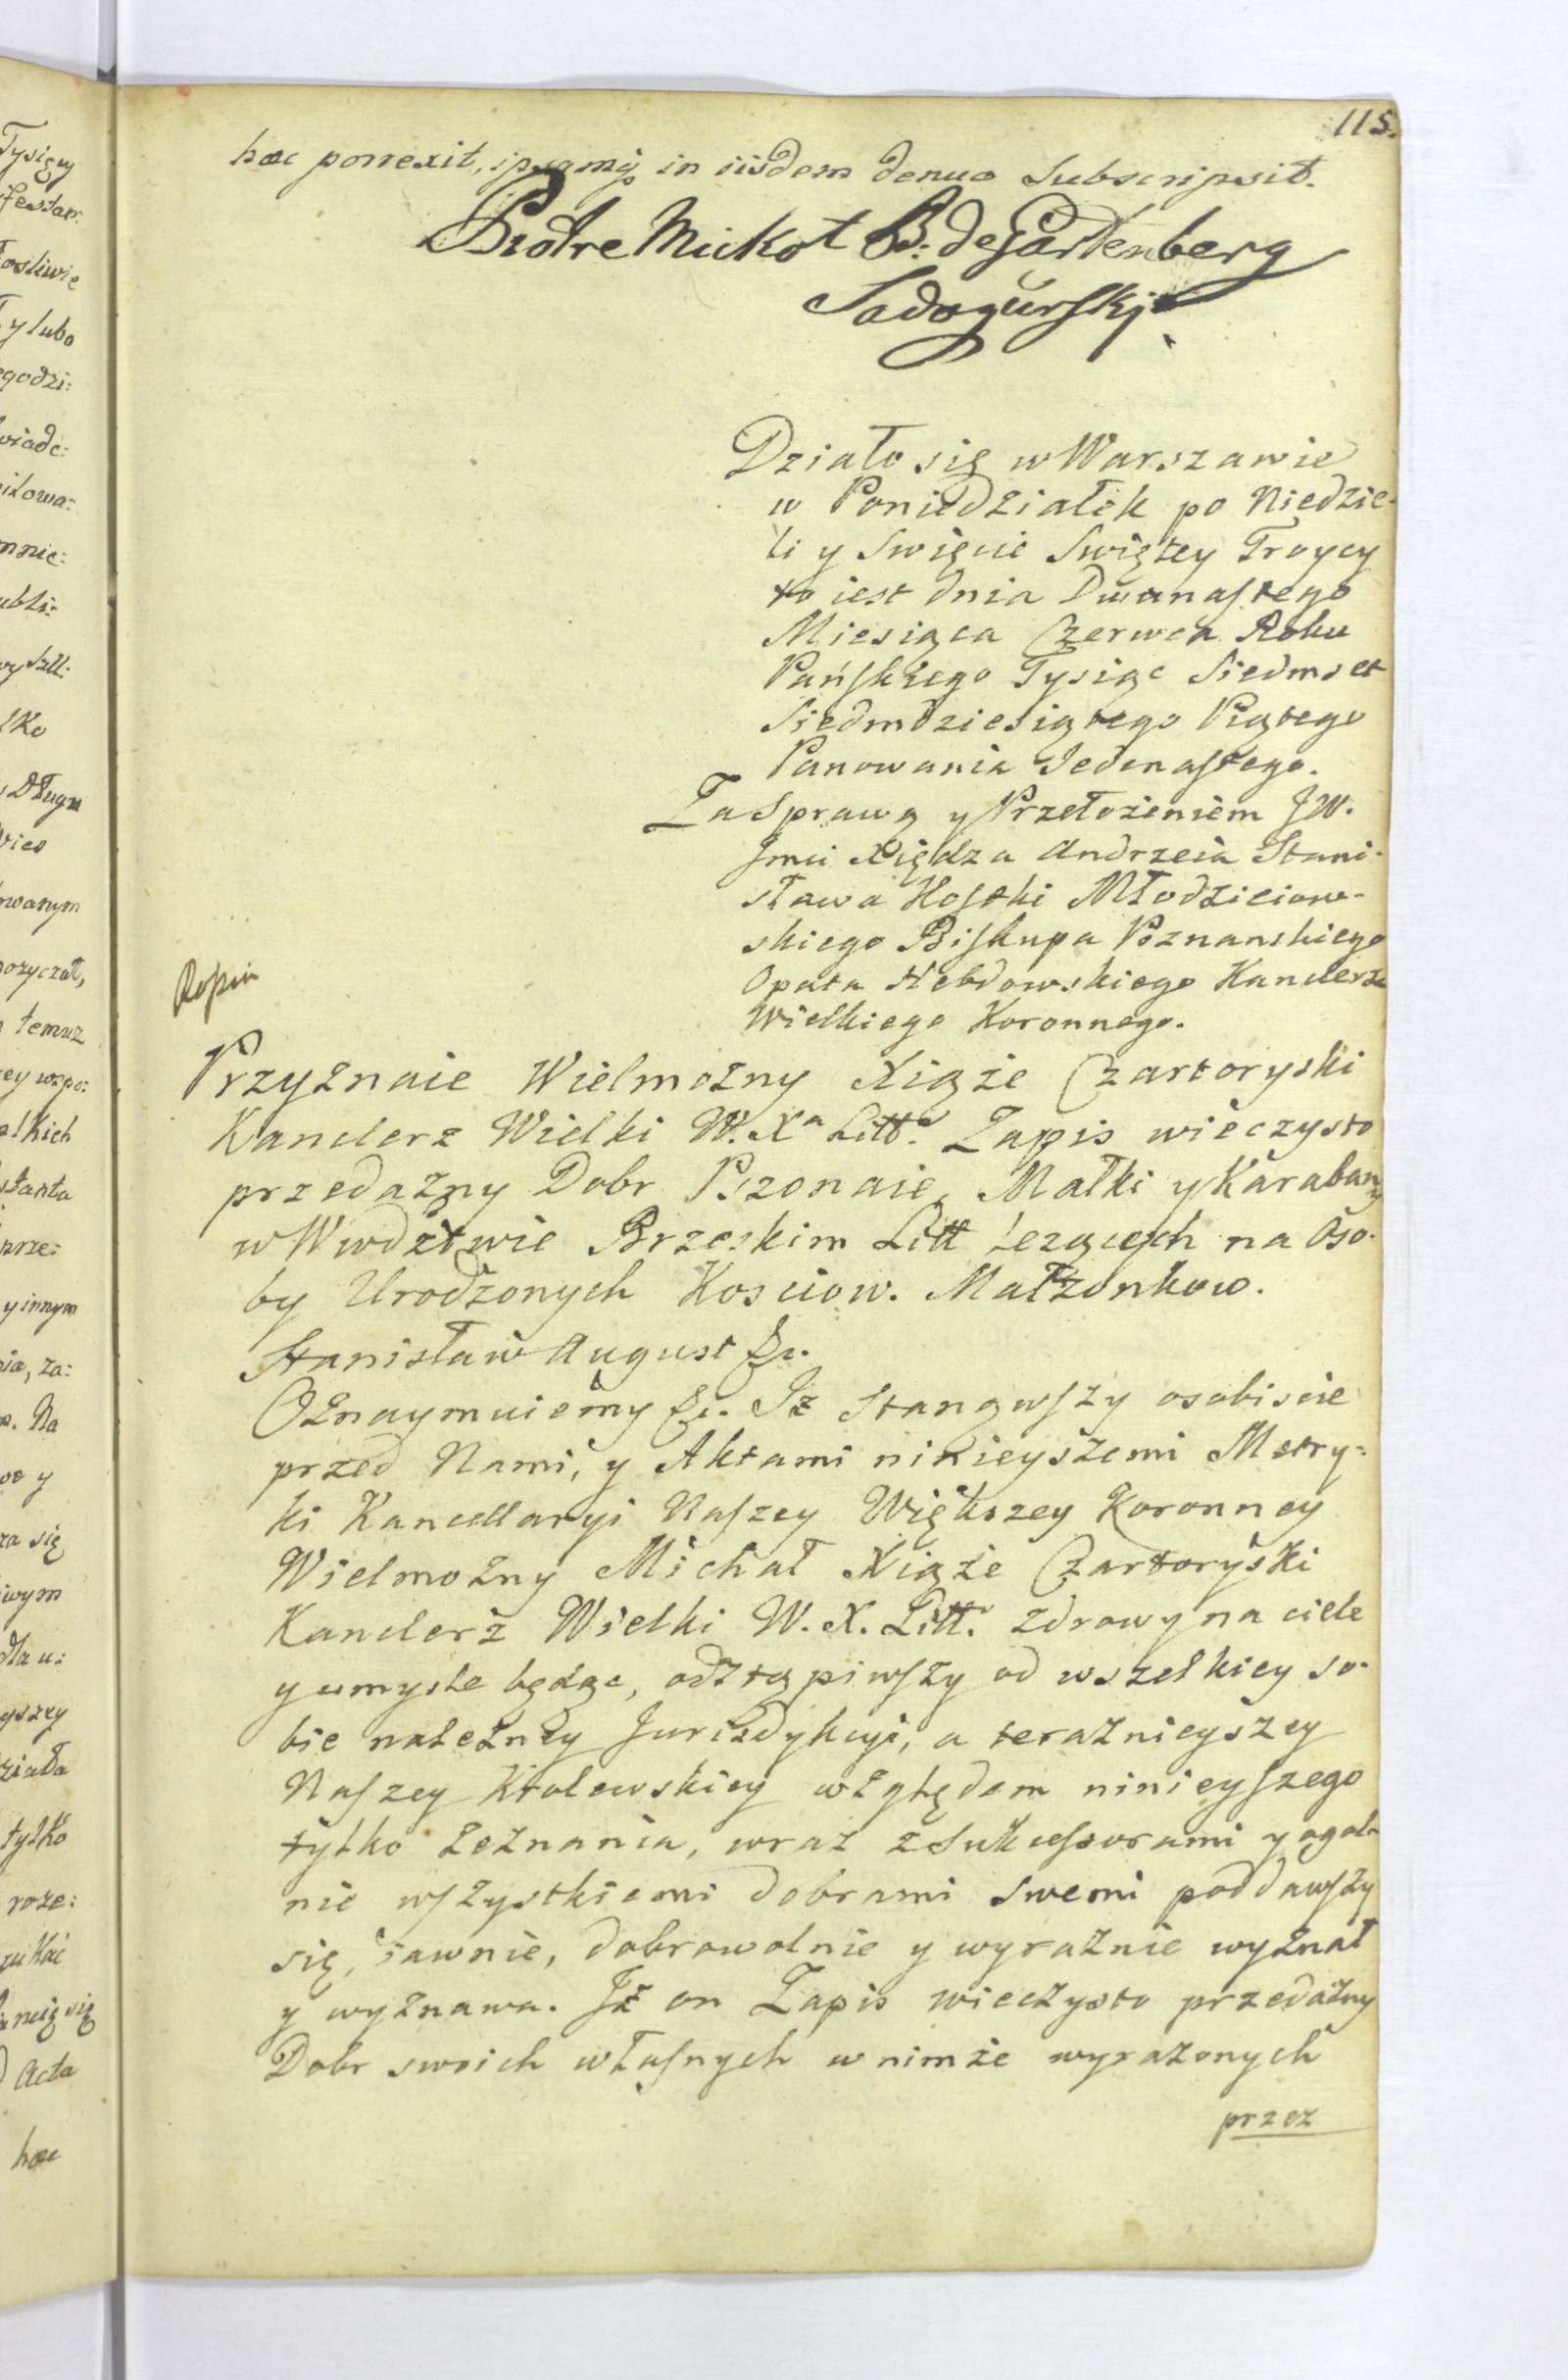 115.
hæc porrexit, ipsamq; in iisdem denuo Subscripsit.
Piotre Mickot B: de Gartenberg
Sadogurskj
Działo się w Warszawie
w Poniedziałek po Niedzie-
li y Swięcie Swiętey Troycy
to iest dnia Dwunastego
Miesiąca Czerwca Roku
Pańskiego Tysiąc Siedmset
Siedmdziesiątego Piątego
Panowania Jedenastego.
Za Sprawą y Przełożeniem JW.
Jmci Xiędza Andrzeia Stani-
sława Kostki Młodzieiow-
skiego Biskupa Poznanskiego
Opata Hebdowskiego Kanclerza
Wielkiego Koronnego.
Przyznaie Wielmożny Xiąże Czartoryski
Kanclerz Wielki W. Xa Litt. Zapis wieczysto
przedażny Dobr Pszonaie, Małki y Karabany
w Wwdztwie Brzeskim Litt leżących na Oso-
by Urodzonych Kosciow. Małżonkow.
Stanisław August &c.
Oznaymuiemy &c. Iż Stanąwszy osobiscie
przed Nami, y Aktami ninieyszemi Metry-
ki Kancellaryi Naszey Większey Koronney
Wielmożny Michał Xiąże Czartoryski
Kanclerz Wielki W. X. Litt. zdrowy na ciele
y umysle będąc, odstąpiwszy od wszelkiey so-
bie należney Jurisdykcyi, a teraznieyszey
Naszey Krolewskiey względem ninieyszego
tylko zeznania, wraz z Sukcessorami y ogol-
nie wszystkiemi dobrami swemi poddawszy
się, iawnie, dobrowolnie y wyraznie wyznał
y wyznawa. Iż on Zapis wieczysto przedażny
Dobr swoich własnych w nimże wyrażonych
przez